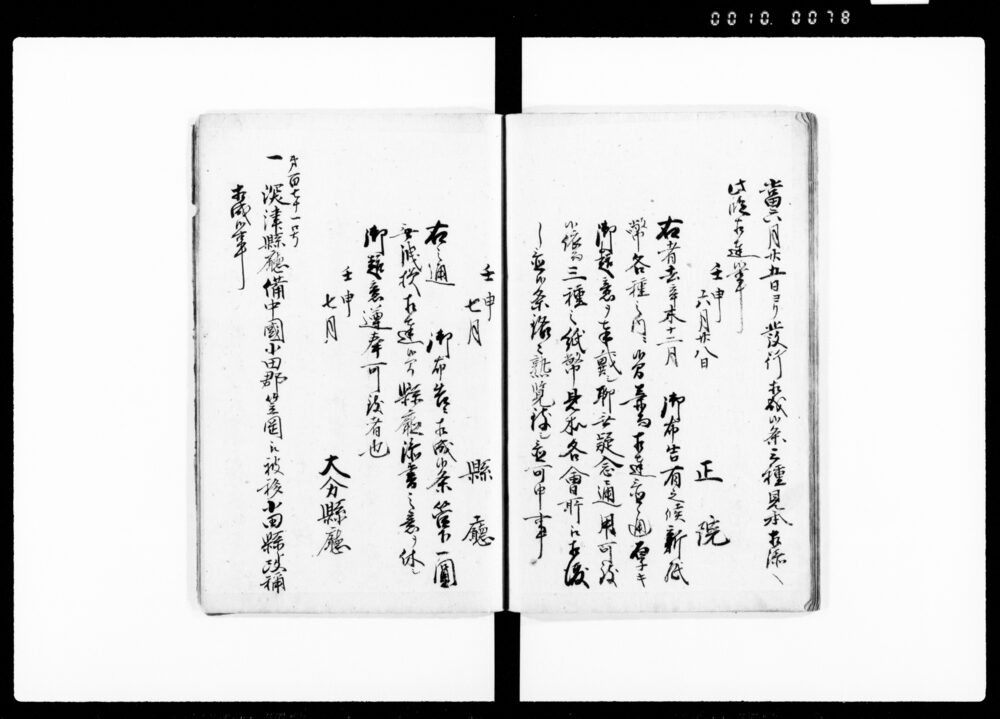 0010. 0078
當六月廿五日ヨリ發行相成候条三種見本相添へ
此段相達候事
壬申
六月廿八日
正院
右者去辛未十二月 御布告有之候新紙
幣各種之内 相達置候通厚キ
御趣意ヲ奉戴シ聊無疑念通用可致
候 三種之紙幣見本各會所江相渡
し置候条篤と熟覧被置可申事
壬申
七月
縣廳
右之通 御布告相成候条管下一圓
無洩 相達候 縣廳添書之意ヲ体シ
御趣意遵奉可致者也
壬申
七月
大分縣廳
第百七十一号
一 深津縣廳備中國小田郡笠岡江被移小田縣改称
相成候事